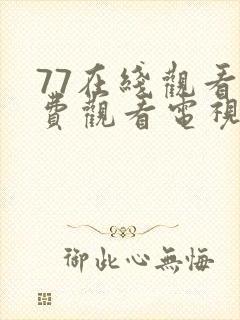 77在綫觀看
費觀看電視
御此心無悔